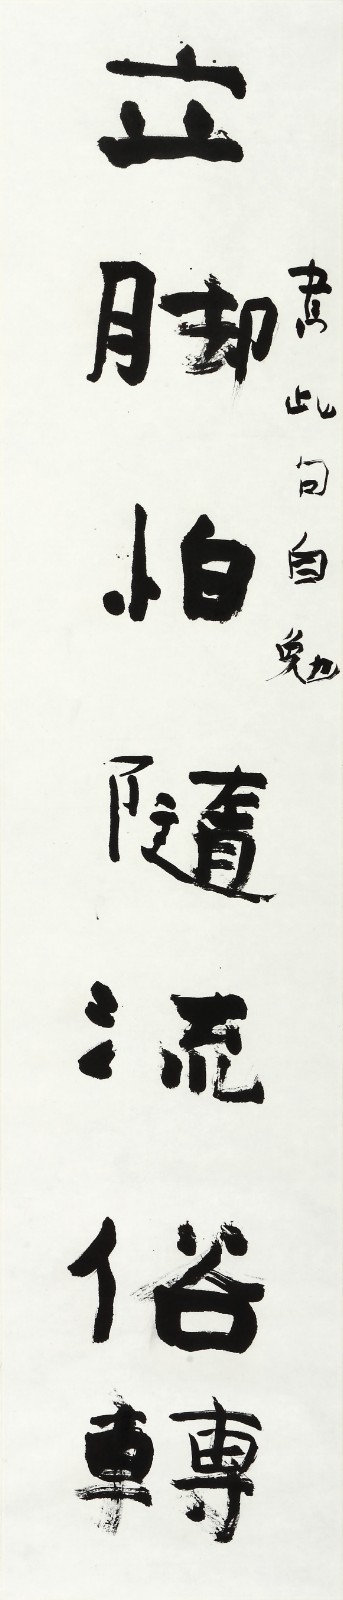 書此句自勉
立脚怕隨流俗轉